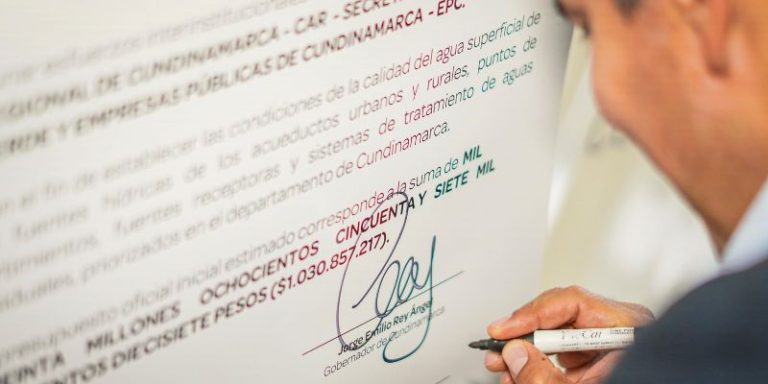 esfuerzos interinstitucionales
CUNDINAMARCA - CAR - SECRE
REGIONAL DE CUNDINAMARCA - EPC.
Y EMPRESAS PÚBLICAS DE CUNDINAMARCA - EPC.
el fin de establecer las condiciones de la calidad del agua superficial de
fuentes hídricas de los acueductos urbanos y rurales, puntos de
fuentes receptoras y sistemas de tratamiento de aguas
priorizados en el departamento de Cundinamarca.
presupuesto oficial inicial estimado corresponde a la suma de MIL
MILLONES OCHOCIENTOS CINCUENTA Y SIETE MIL
DIECISIETE PESOS ($1.030.857.217).
Jorge Emilio Rey Ángel
Gobernador de Cundinamarca